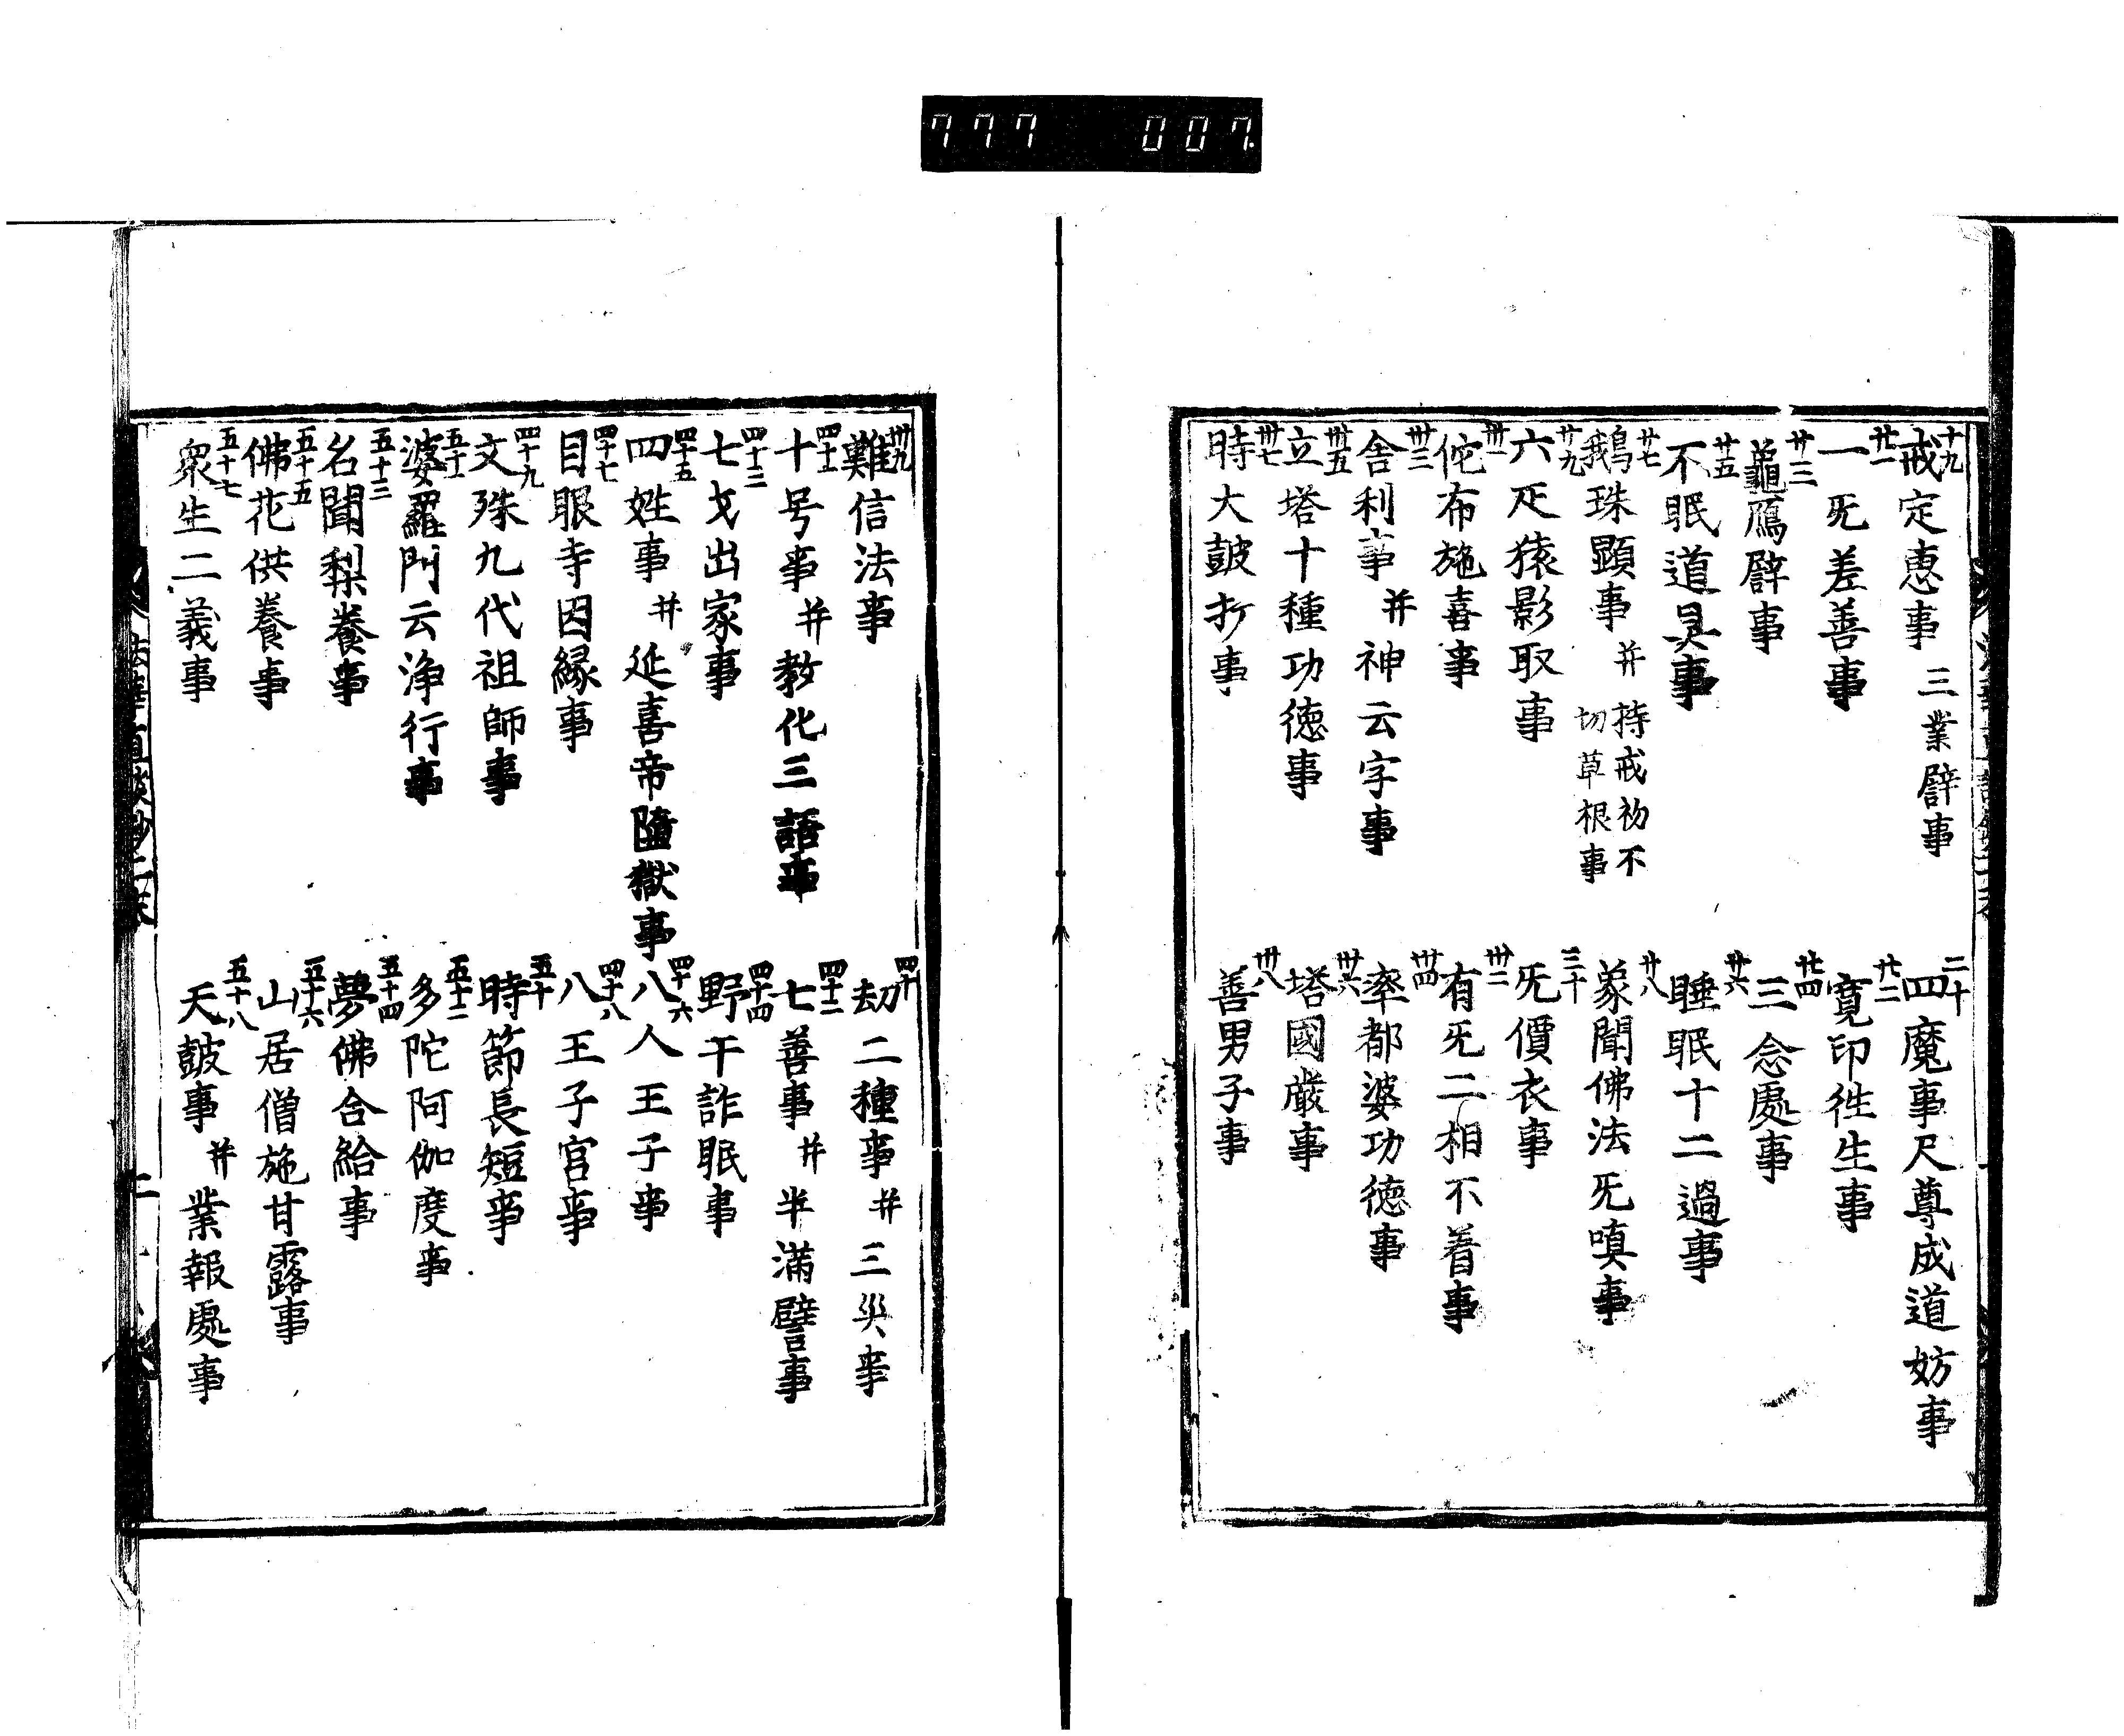 777 007
十九 戒定恵事 三業譬事
二十 四魔事尺尊成道妨事
廿一 一旡差善事
廿二 寛印徃生事
廿三 龜鴈譬事
廿四 三念處事
廿五 不眠道具事
廿六 睡眠十二過事
廿七 鵝珠顕事 并 持戒初不切草根事
廿八 象聞佛法旡嗔事
廿九 六疋猿影取事
三十 旡價衣事
卅一 佗布施喜事
卅二 有旡二相不着事
卅三 舎利事 并 神云字事
卅四 率都婆功徳事
卅五 立塔十種功徳事
卅六 塔國厳事
卅七 時大皷打事
卅八 善男子事
卅九 難信法事
四十 劫二種事 并 三災事
四十一 十号事 并 教化三語事
四十二 七善事 并 半滿譬事
四十三 七才出家事
四十四 野干詐眠事
四十五 四姓事 并 延喜帝隨獄事
四十六 八人王子事
四十七 目眼寺因縁事
四十八 八王子宮事
四十九 文殊九代祖師事
五十 時節長短事
五十一 婆羅門云浄行事
五十二 多陀阿伽度事
五十三 名聞梨養事
五十四 夢佛合給事
五十五 佛花供養事
五十六 山居僧施甘露事
五十七 衆生二義事
五十八 天皷事 并 業報處事
法華直談鈔二末